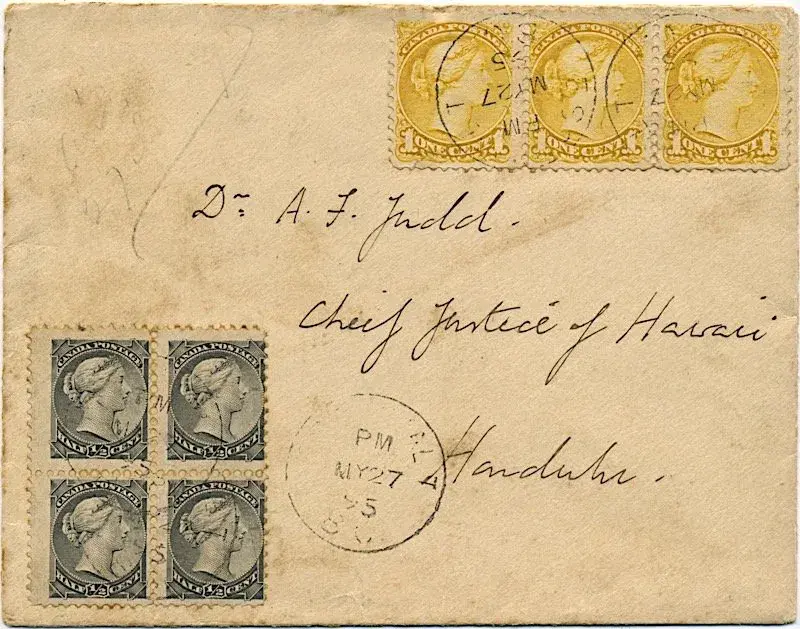 CANADA POSTAGE CANADA POSTAGE CANADA POSTAGE
1 ONE CENT 1 1 ONE CENT 1 1 ONE CENT 1
MY27
Dr. A. F. Judd.
Chief Justice of Hawaii
Honolulu.
CANADA POSTAGE CANADA POSTAGE
HALF ½ CENT HALF ½ CENT
CANADA POSTAGE CANADA POSTAGE
HALF ½ CENT HALF ½ CENT
PM
MY27
95
B.C.